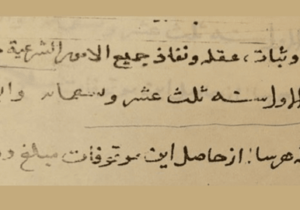 وثبات، عقله ونفاذ جميع الامور الشرعية
الاول سنه ثلث عشر وسبعمائه
هرساله از حاصل این موقوفات مبلغ